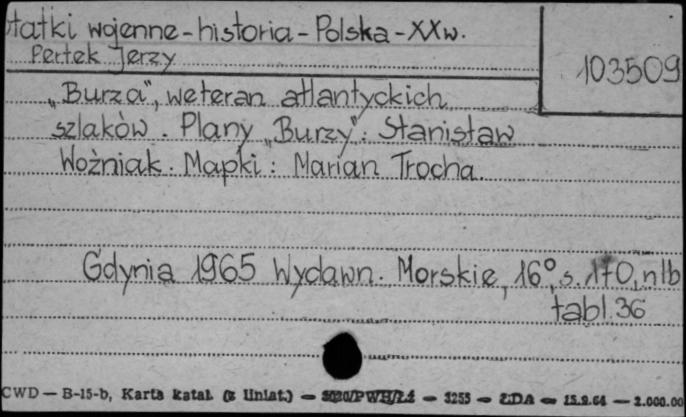 Statki wojenne - historia - Polska - XX w.
Pertek Jerzy
103509
„Burza", weteran atlantyckich
szlaków. Plany „Burzy": Stanisław
Woźniak. Mapki: Marian Trocha.
Gdynia 1965 Wydawn. Morskie, 16°, s. 170, nlb
tabl. 36
CWD — B-15-b, Karta katal. (z liniat.) — — 3255 — ŁDA — 15.9.64 — 2.000.00